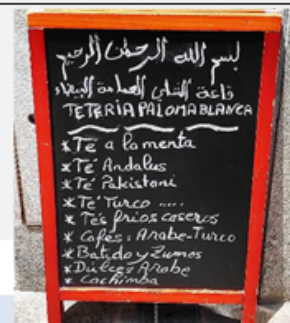 بسم الله الرحمن الرحيم
قاعة الشاي الحمامة البيضاء
TETERIA PALOMA BLANCA
* Té a la menta
* Té Andalus
* Té Pakistani
* Té Turco ....
* Tés frios caseros
* Cafés: Arabe-Turco
* Batido y Zumos
* Dulces Arabe
* Cachimba